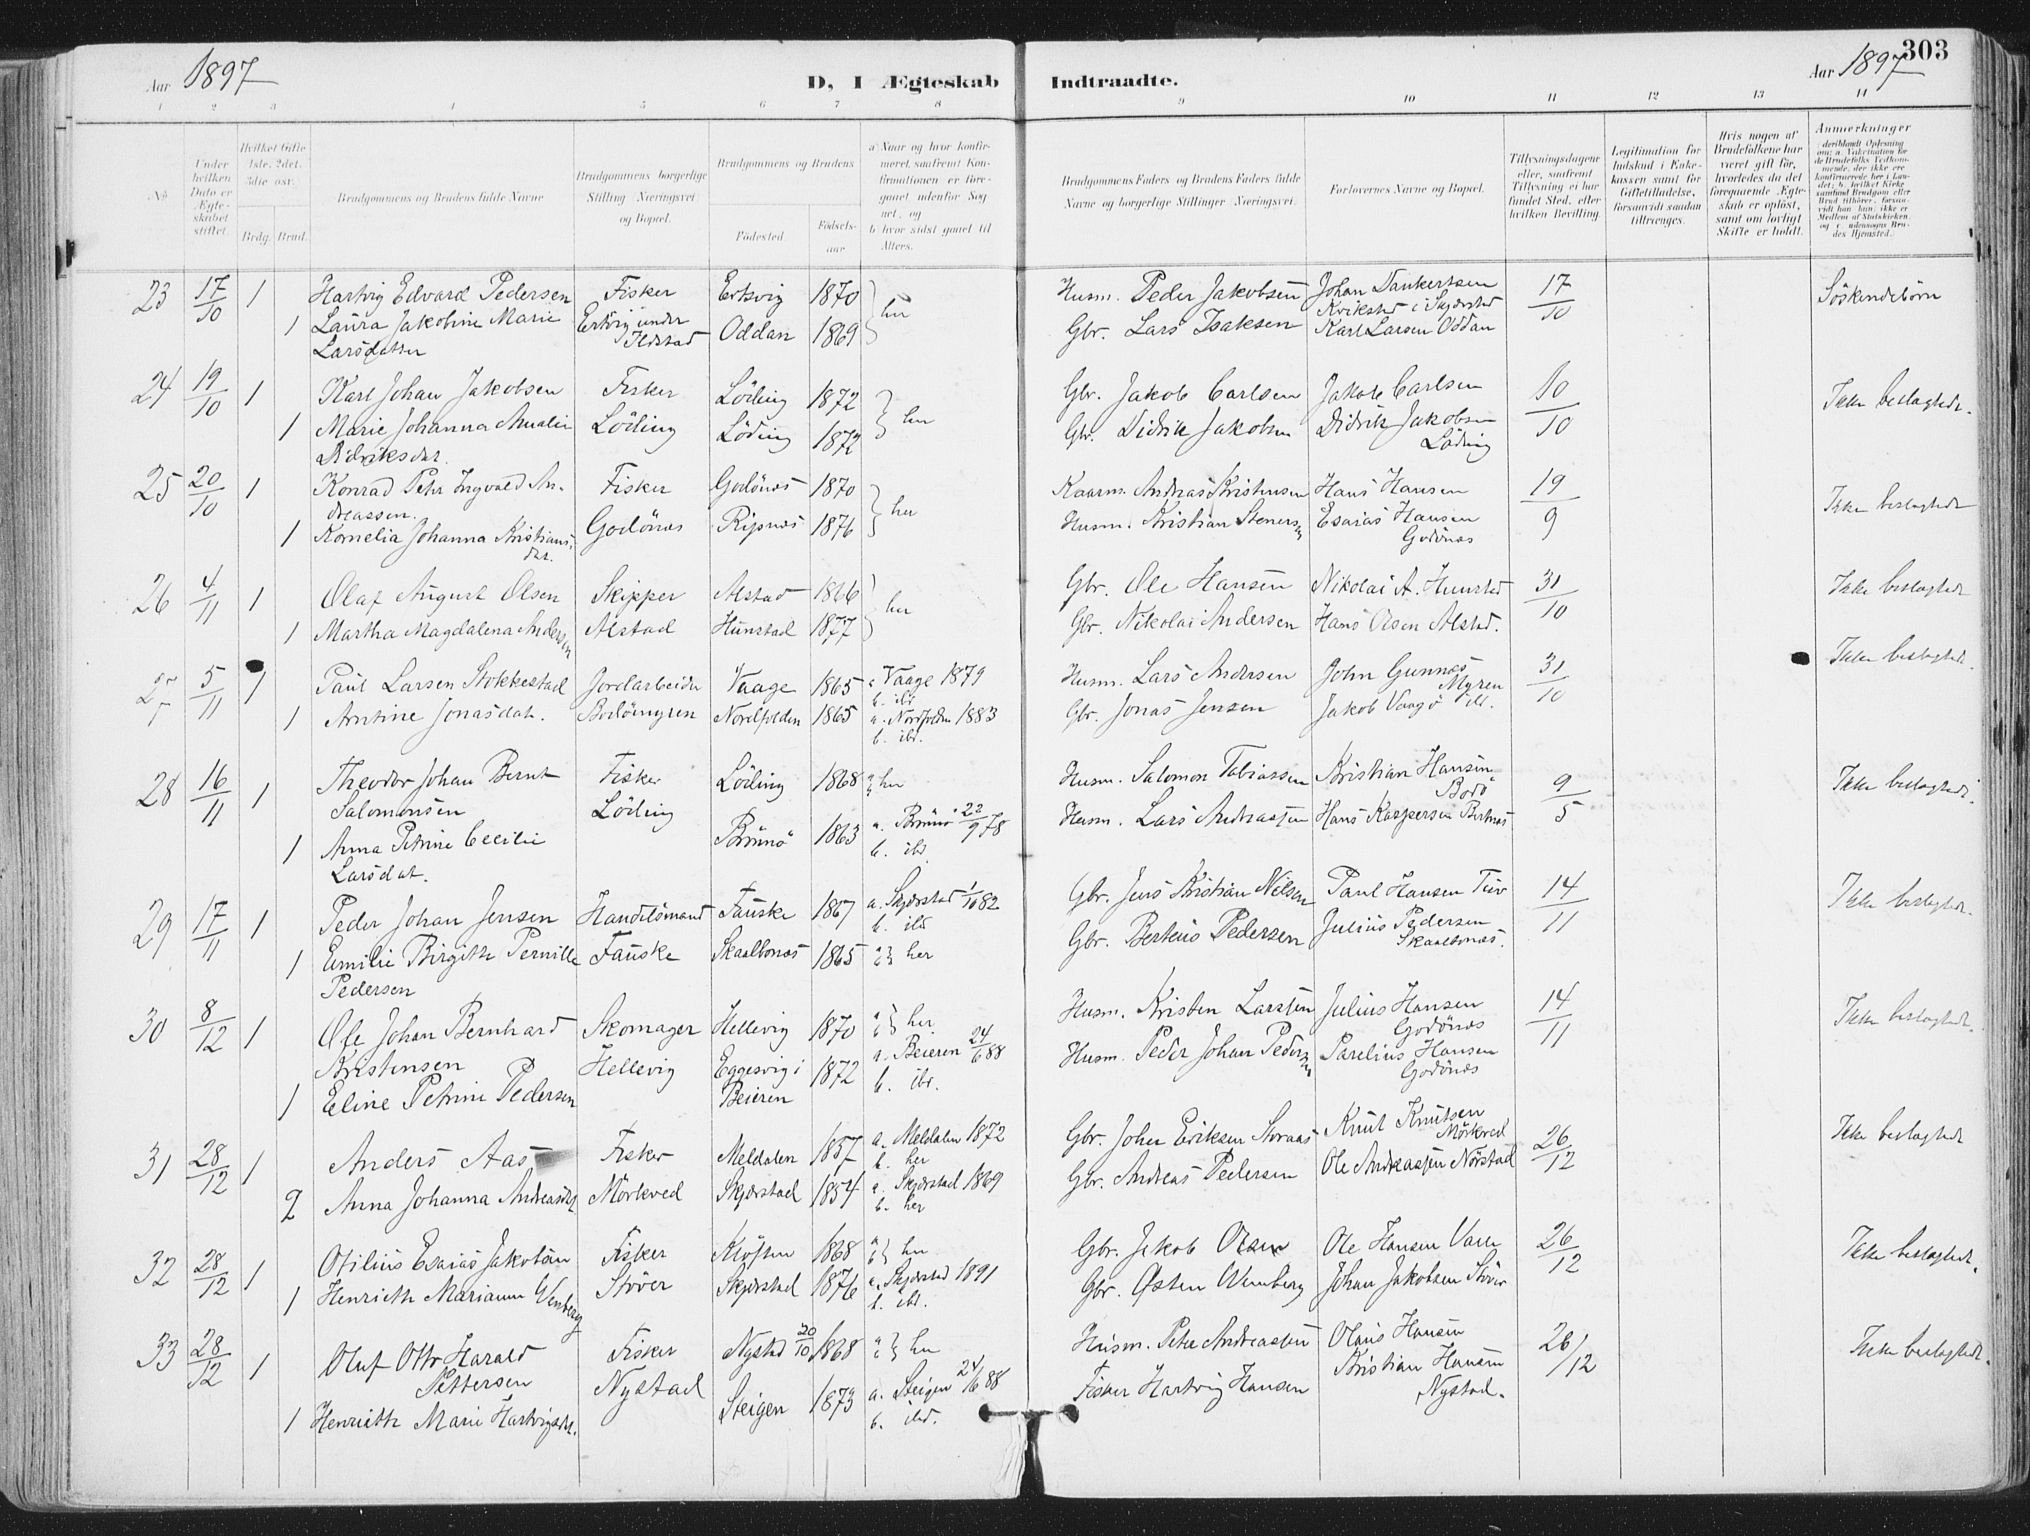 Aar 1897
D, I Ægteskab Indtraadte.
Aar 1897
303
1 2 3 4 5 6 7 8 9 10 11 12 13 14
No
Under hvilken Dato er Ægteskabet stiftet
Hvilket Gifte 1ste, 2det, 3die osv.
Brdg. Brud.
Brudgommens og Brudens fulde Navne
Brudgommens borgerlige Stilling Næringsvei og Bopæl.
Brudgommens og Brudens
Födested. Födselsaar
a Naar og hvor konfirmeret, saafremt Konfirmationen er foregaaet udenfor Sognet, og
b hvor sidst gaaet til Alters.
Brudgommens Faders og Brudens Faders fulde Navne og borgerlige Stillinger Næringsvei.
Forlovernes Navne og Bopæl.
Tillysningsdagene eller, saafremt Tillysning ei har fundet Sted, efter hvilken Bevilling.
Legitimation for Indskud i Enkekassen samt for Giftetilladelse, forsaavidt saadan tiltrænges.
Hvis nogen af Brudefolkene har været gift för, hvorledes da det foregaaende Ægteskab er oplöst, samt om lovligt Skifte er holdt.
Anmærkninger
23 17/10 1 Hartvig Edvard Pedersen Fisker Ertsvig 1870 her Husm. Peder Jakobsen Johan Dankertsen 17/10 Söskendebörn
Kvikstad i Skjerstad
1 Laura Jakobine Marie Larsdatter Ertsvig under Ildstad Oddan 1869 Gbr. Lars Isaksen Karl Larsen Oddan
24 19/10 1 Karl Johan Jakobsen Fisker Löding 1872 her Gbr. Jakob Carlsen Jakob Carlsen 10/10 Ikke beslægtede.
1 Marie Johanna Amalie Didriksdat. Löding Löding 1872 Gbr. Didrik Jakobsen Didrik Jakobsen Löding
25 20/10 1 Konrad Petr Ingvald Andreassen. Fisker Godönæs 1870 her Kaarm. Andreas Kristensen Hans Hansen 19/9 Ikke beslægtede
1 Kornelia Johanna Kristiansdat. Godönæs Ripnæs 1876 Husm. Kristian Stenersen Esaias Hansen Godönæs
26 4/11 1 Olaf August Olsen Skipper Alstad 1866 her Gbr. Ole Hansen Nikolai A. Hunstad 31/10 Ikke beslægtede
1 Martha Magdalena Andersen Alstad Hunstad 1877 Gbr. Nikolai Andersen Hans Olsen Alstad.
27 5/11 1 Paul Larsen Stokkestad Jordarbeider Vaage 1865 a. Vaage 1879 b. ibd Husm. Lars Andersen John Gunnes Myren 31/10 Ikke beslægtede.
1 Arntine Jonasdat. Bodömyren Nordfolden 1865 a. Nordfolden 1883 b. ibd. Gbr. Jonas Jensen Jakob Vaagö ibd.
28 16/11 1 Theodor Johan Bernt Salomonsen Fisker Löding 1868 her Husm. Salomon Tobiassen Kristian Hansen Bodö 9/5 Ikke beslægtede.
1 Anna Petrine Cecilie Larsdat. Löding Brönnö 1863 a. Brönnö 22/9 78 b. ibd. Husm. Lars Andreassen Hans Kaspersen Bertnæs
29 17/11 1 Peder Johan Jensen Handelsmand Fauske 1867 a. Skjerstad 1/10 82 b. ibd Gbr. Jens Kristian Nilsen Paul Hansen Tuv 14/11 Ikke beslægtede.
1 Emilie Birgithe Pernille Pedersen Fauske Skaalbonæs 1865 her Gbr. Berteus Pedersen Julius Pedersen Skaalbonæs.
30 8/12 1 Ole Johan Bernhard Kristensen Skomager Hellevig 1870 her. Husm. Kristen Larssen Julius Hansen Godönæs 14/11 Ikke beslægtede.
1 Eline Petrine Pedersen Hellevig Eggesvig i Beieren 1872 a. Beieren 24/6 88 b. ibd. Husm. Peder Johan Pedersen Parelius Hansen Godönæs
31 28/12 1 Anders Aas Fisker Meldalen 1857 a. Meldalen 1872 b. her Gbr. John Eriksen Storaas Knut Knutsen Mörkved 26/12 Ikke beslægtede
2 Anna Johanna Andreasdt. Mörkved Skjerstad 1854 a. Skjerstad 1869 b. her Gbr. Andreas Pedersen Ole Andreassen Nörstad
32 28/12 1 Otilius Esaias Jakobsen Fisker Klöften 1868 her Gbr. Jakob Olsen Ole Hansen Valle 26/12 Ikke beslægtede.
1 Henriette Marianne Wenberg Stöver Skjerstad 1876 a. Skjerstad 1891 b. ibd. Gbr. Östen Wenberg Johan Jakobsen Stöver
33 28/12 1 Oluf Otto Harald Pettersen Fisker Nystad 20/10 1868 her Husm. Peter Andreassen Olaus Hansen 26/12 Ikke beslægtede.
1 Henriette Marie Hartvigsdt. Nystad Steigen 1873 a. Steigen 24/6 88 b. ibd. Fisker Hartvig Hansen Kristian Hansen Nystad.